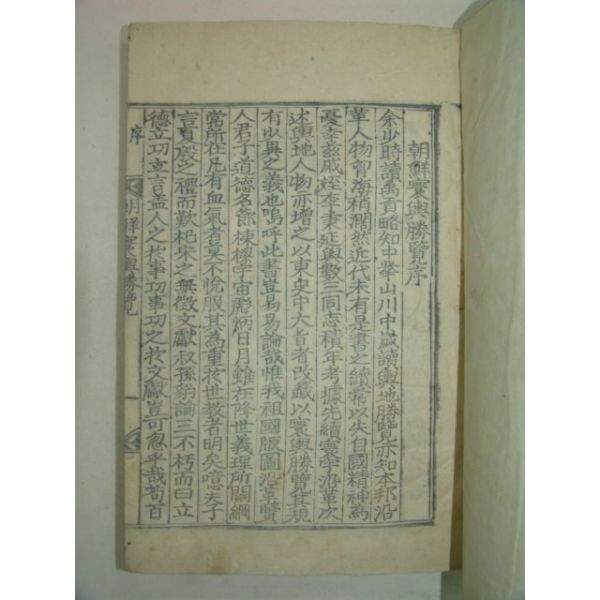 朝鮮寰輿勝覽序
余少時讀禹貢略知中華山川中歲讀輿地勝覽亦知本邦沿
革人物、山海稍濶然近代未有是書之續常以失自國精神為
憂幸玆戚姪李秉延與數三同志積年考據先續寰宇沿革次
述輿地人物亦增之以東史中大旨者改籤以寰輿勝覽其規
有少異之義也嗚呼此書豈易易論哉惟我祖國版圖沿革賢
人君子道德名節棟樑宇宙彪炳日月雖在降世義理所關綱
常所在凡有血氣者莫不悅服其為重於世敎者明矣噫夫子
言夏殷之禮而歎杞宋之無徵文獻叔孫豹論三不朽而曰立
德立功立言盖人之於事功事功之於文獻豈可忽乎哉苟百
序
朝鮮寰輿勝覽
一